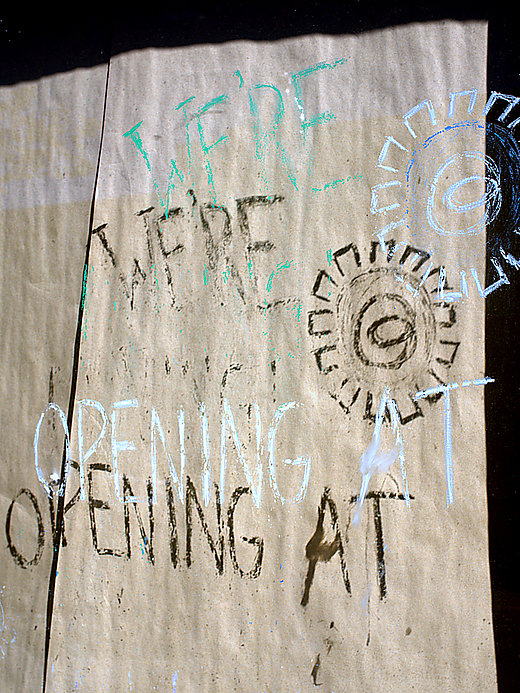 WE'RE
WE'RE
OPENING AT
OPENING AT